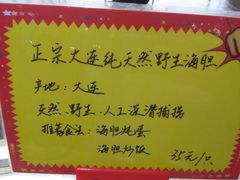 正宗大连纯天然野生海胆
产地:大连
天然、野生、人工深潜捕捞
推荐食法:海胆炖蛋
海胆炒饭
35元/只